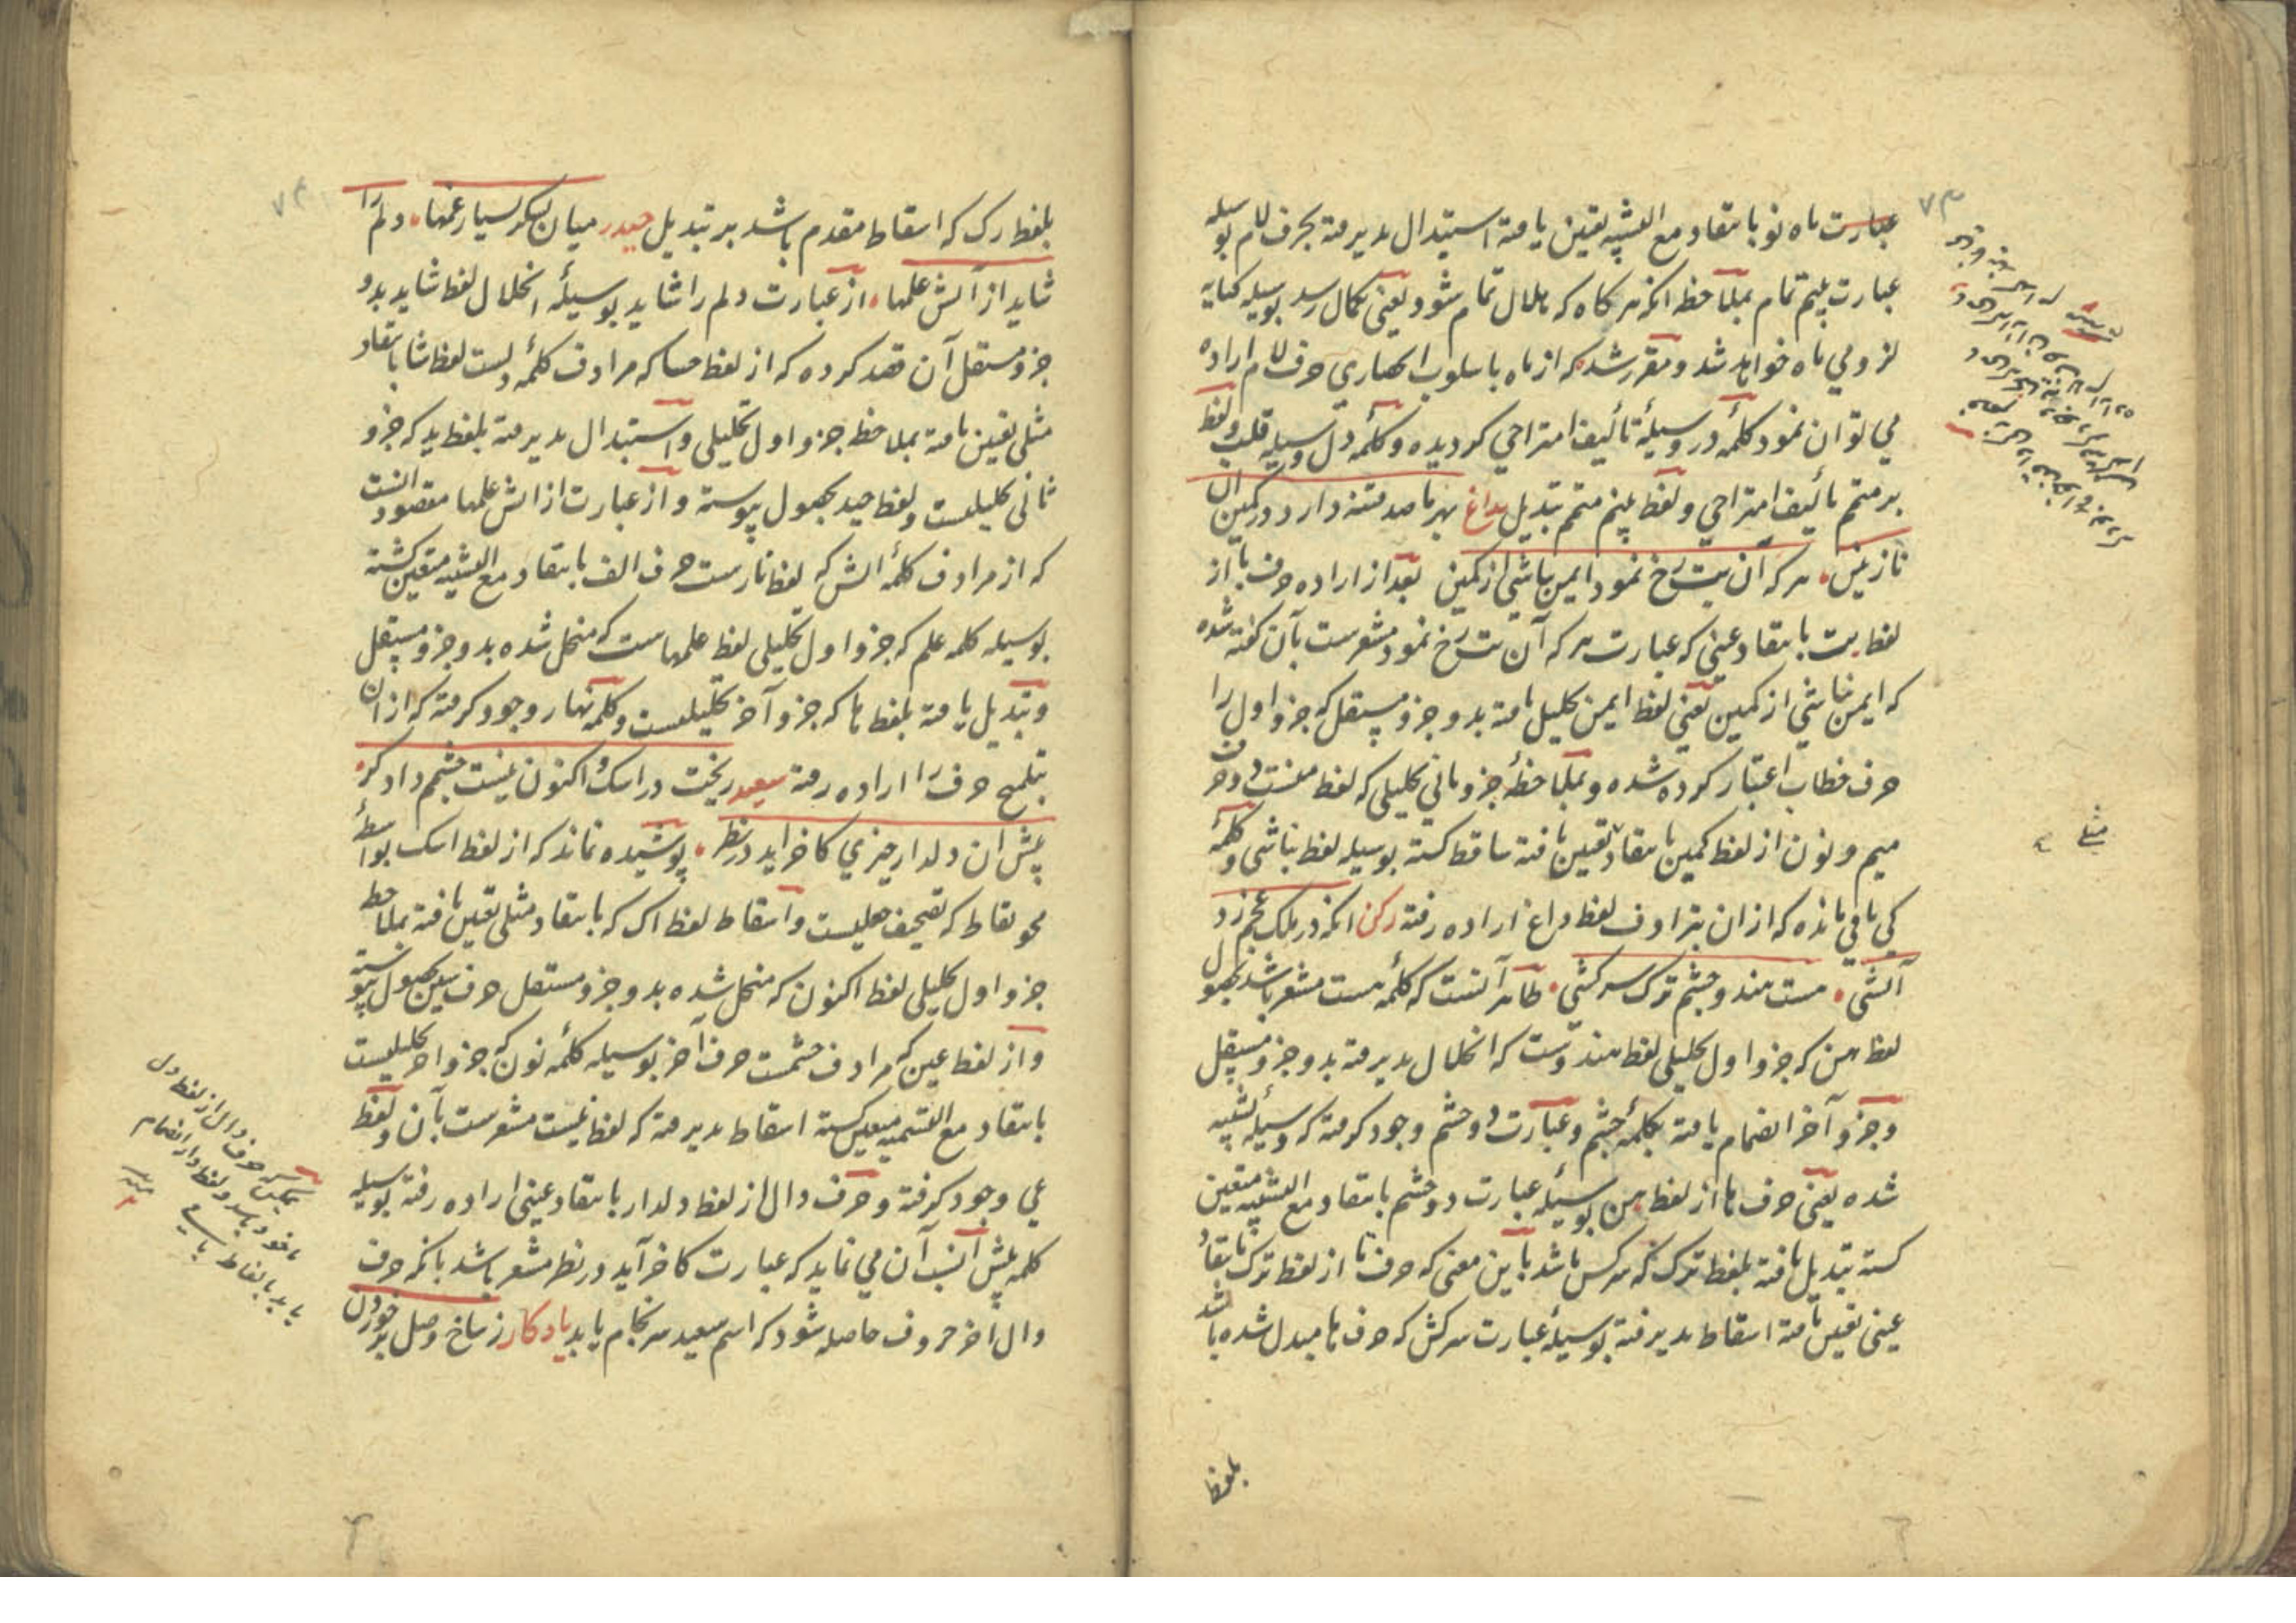 ۷۳
عبارت ماه نو بانتقاد مع التشبیه تعین یافته استبدال پذیرفته بحرف لام بوسیله
عبارت بلیم تمام بملاحظه انکه هر کاه که هلال تمام شود یعنی بکمال رسد بوسیله کنایه
لزومي ماه خواهد شد و مقرر شد که از ماه باسلوب احصاري حرف لام اراده
مي توان نمود کلمه در وسیلهٔ تألیف امتزاجي کردیده و کلمه دل وسیله قلب و لفظ
بر متمم تألیف امتزاجي و لفظ پنم متمم تبدیل بداغ بهر ما صد فتنه دارد در کمین ان
نازنین هر که ان بت رخ نمود ایمن نباشي از کمین بعد از اراده حرف با از
لفظ بت بانتقاد عینی که عبارت هر که آن بت رخ نمود مشعرست بآن کفته شده
که ایمن نباشي از کمین یعنی لفظ ایمن تحلیل یافته بدو جزو مستقل که جزو اول را
حرف خطاب اعتبار کرده شده و بملاحظهٔ جزو ثاني تحلیلی که لفظ منست دو حرف
میم و نون از لفظ کمین بانتقاد تعین یافته ساقط کشته بوسیله لفظ نباشی و کلمه
کي باقي مانده که ازان بترادف لفظ داغ اراده رفته رکن انکه در ملک عجم زد
آتشي مست هندو چشم ترک سرکشي ظاهر آنست که کلمه مست مشعر باشد بحصول
لفظ هن که جزو اول تحلیلی لفظ هندوست که انحلال پذیرفته بدو جزو مستقل
و جزو آخر انضمام یافته بکلمه چشم و عبارت دو چشم وجود کرفته که وسیلهٔ تشبیه
شده یعنی حرف ها از لفظ هن بوسیلهٔ عبارت دو چشم بانتقاد مع التشبیه متعین
کشته تبدیل یافته بلفظ ترک که سرکش باشد باین معنی که حرف تا از لفظ ترک بانتقاد
عینی تعین یافته اسقاط پذیرفته بوسیلهٔ عبارت سرکش که حرف ها مبدل شده باشد
مثلی
بلفظ
۷۴
بلفظ رک که اسقاط مقدم باشد بر تبدیل حیدر میان لشکر بسیار غمها دلم را
شاید از آتش علمها از عبارت دلم را شاید بوسیلهٔ انحلال لفظ شاید بدو
جزو مستقل آن قصد کرده که از لفظ حسا که مرادف کلمه دلست لفظ شا بانتقاد
مثلی تعین یافته بملاحظه جزو اول تحلیلی و استبدال پذیرفته بلفظ ید که جزو
ثانی تحلیلیست و لفظ حید بحصول پیوسته و از عبارت از اتش علمها مقصود انست
که از مرادف کلمه اتش که لفظ نارست حرف الف بانتقاد مع التشبیه متعین کشته
بوسیله کلمه علم که جزو اول تحلیلی لفظ علمهاست که منحل شده بدو جزو مستقل
و تبدیل یافته بلفظ ها که جزو آخر تحلیلیست و کلمه نهار وجود کرفته که ازان
بتلمیح حرف را اراده رفته سعید ریخت در اشک و اکنون نیست چشم داد کر
پیش ان دلدار چیزي کاخر اید در نظر پوشیده نماند که از لفظ اشک بواسطهٔ
محو نقاط که تصحیف جعلیست و اسقاط لفظ اک که بانتقاد مثلی تعین یافته بملاحظه
جزو اول تحلیلی لفظ اکنون که منحل شده بدو جزو مستقل حرف سین بحصول پیوسته
و از لفظ عین که مرادف چشمست حرف آخر بوسیله کلمه نون که جزو اخر تحلیلیست
بانتقاد مع التسمیه متعین کشته اسقاط پذیرفته که لفظ نیست مشعرست بآن و لفظ
عي وجود کرفته و حرف دال از لفظ دلدار بانتقاد عینی اراده رفته بوسیله
کلمه پیش انسب آن مي نماید که عبارت کاخر آید در نظر مشعر باشد بانکه حرف
دال اخر حروف حاصله شود که اسم سعید سرنجام یابد یادکار ز شاخ وصل بر خوردن
حرف دال از لفظ دل